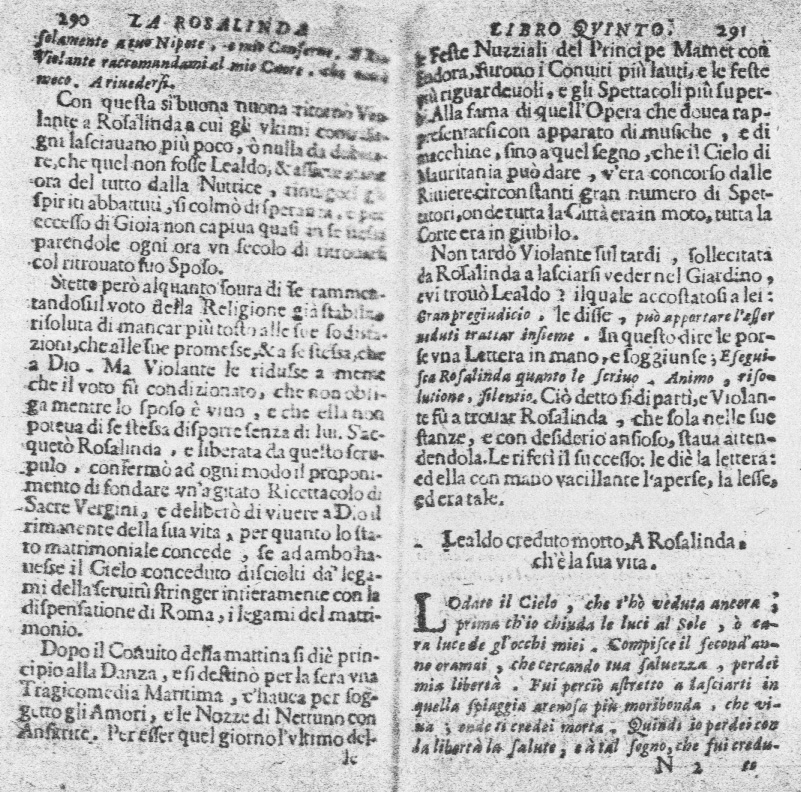 290 LA ROSALINDA
solamente a tuo Nipote, e mio Conserue. A
Violante raccomandami al mio Cuore, che
meco. A riuedersi.
Con questa sì buona nuoua ritornò Vio-
lante a Rosalinda a cui gli vltimi
gni lasciauano più poco, ò nulla da dubita-
re, che quel non fosse Lealdo, &
ora del tutto dalla Nutrice, rinuigorì gli
spiriti abbattuti, si colmò di speranza, e per
eccesso di Gioia non capiua quasi in se stessa
parendole ogni ora vn secolo di ritrouarsi
col ritrouato suo Sposo.
Stette però alquanto soura di se rammen-
tandosi il voto della Religione già stabilito
risoluta di mancar più tosto alle sue sodisfa-
zioni, che alle sue promesse, & a se stessa, che
a Dio. Ma Violante le ridusse a mente
che il voto fù condizionato, che non obli-
ga mentre lo sposo è viuo, e che ella non
poteua di se stessa disporre senza di lui. S'ac-
quetò Rosalinda, e liberata da questo scru-
pulo, confermò ad ogni modo il proponi-
mento di fondare vn'agitato Ricettacolo di
Sacre Vergini, e deliberò di viuere a Dio il
rimanente della sua vita, per quanto lo sta-
to matrimoniale concede, se ad ambo ha-
uesse il Cielo conceduto disciolti da' lega-
mi della seruitù stringer intieramente con la
dispensatione di Roma, i legami del matri-
monio.
Dopo il Conuito della mattina si diè prin-
cipio alla Danza, e si destinò per la sera vna
Tragicomedia Maritima, c'hauea per sog-
getto gli Amori, e le Nozze di Nettuno con
Anfitrite. Per esser quel giorno l'vltimo del-
le
LIBRO QVINTO. 291
le Feste Nuzziali del Principe Mamet con
Eudora, furono i Conuiti più lauti, e le feste
più riguardeuoli, e gli Spettacoli più super-
bi. Alla fama di quell'Opera che douea rap-
presentarsi con apparato di musiche, e di
macchine, sino a quel segno, che il Cielo di
Mauritania può dare, v'era concorso dalle
Riuiere circonstanti gran numero di Spet-
tatori, onde tutta la Città era in moto, tutta la
Corte era in giubilo.
Non tardò Violante sul tardi, sollecitata
da Rosalinda a lasciarsi veder nel Giardino,
e vi trouò Lealdo? il quale accostatosi a lei:
Gran pregiudicio, le disse, può apportare l'esser
veduti trattar insieme. In questo dire le por-
se vna Lettera in mano, e soggiunse; Esegui-
sca Rosalinda quanto le scriuo. Animo, riso-
lutione, silentio. Ciò detto si di partì, e Violan-
te fù a trouar Rosalinda, che sola nelle sue
stanze, e con desiderio ansioso, staua atten-
dendola. Le riferì il successo: le diè la lettera:
ed ella con mano vacillante l'aperse, la lesse,
ed era tale.
Lealdo creduto morto, A Rosalinda.
ch'è la sua vita.
LOdato il Cielo, che t'hò veduta ancora;
prima ch'io chiuda le luci al Sole, ò ca-
ra luce de gl'occhi miei. Compisce il second'an-
no eramai, che cercando tua saluezza, perdei
mia libertà. Fui perciò astretto a lasciarti in
quella spiaggia arenosa più moribonda, che vi-
ua; onde ti credei morta. Quindi io perdei con
la libertà la salute, e à tal segno, che fui credu-
N 2 to